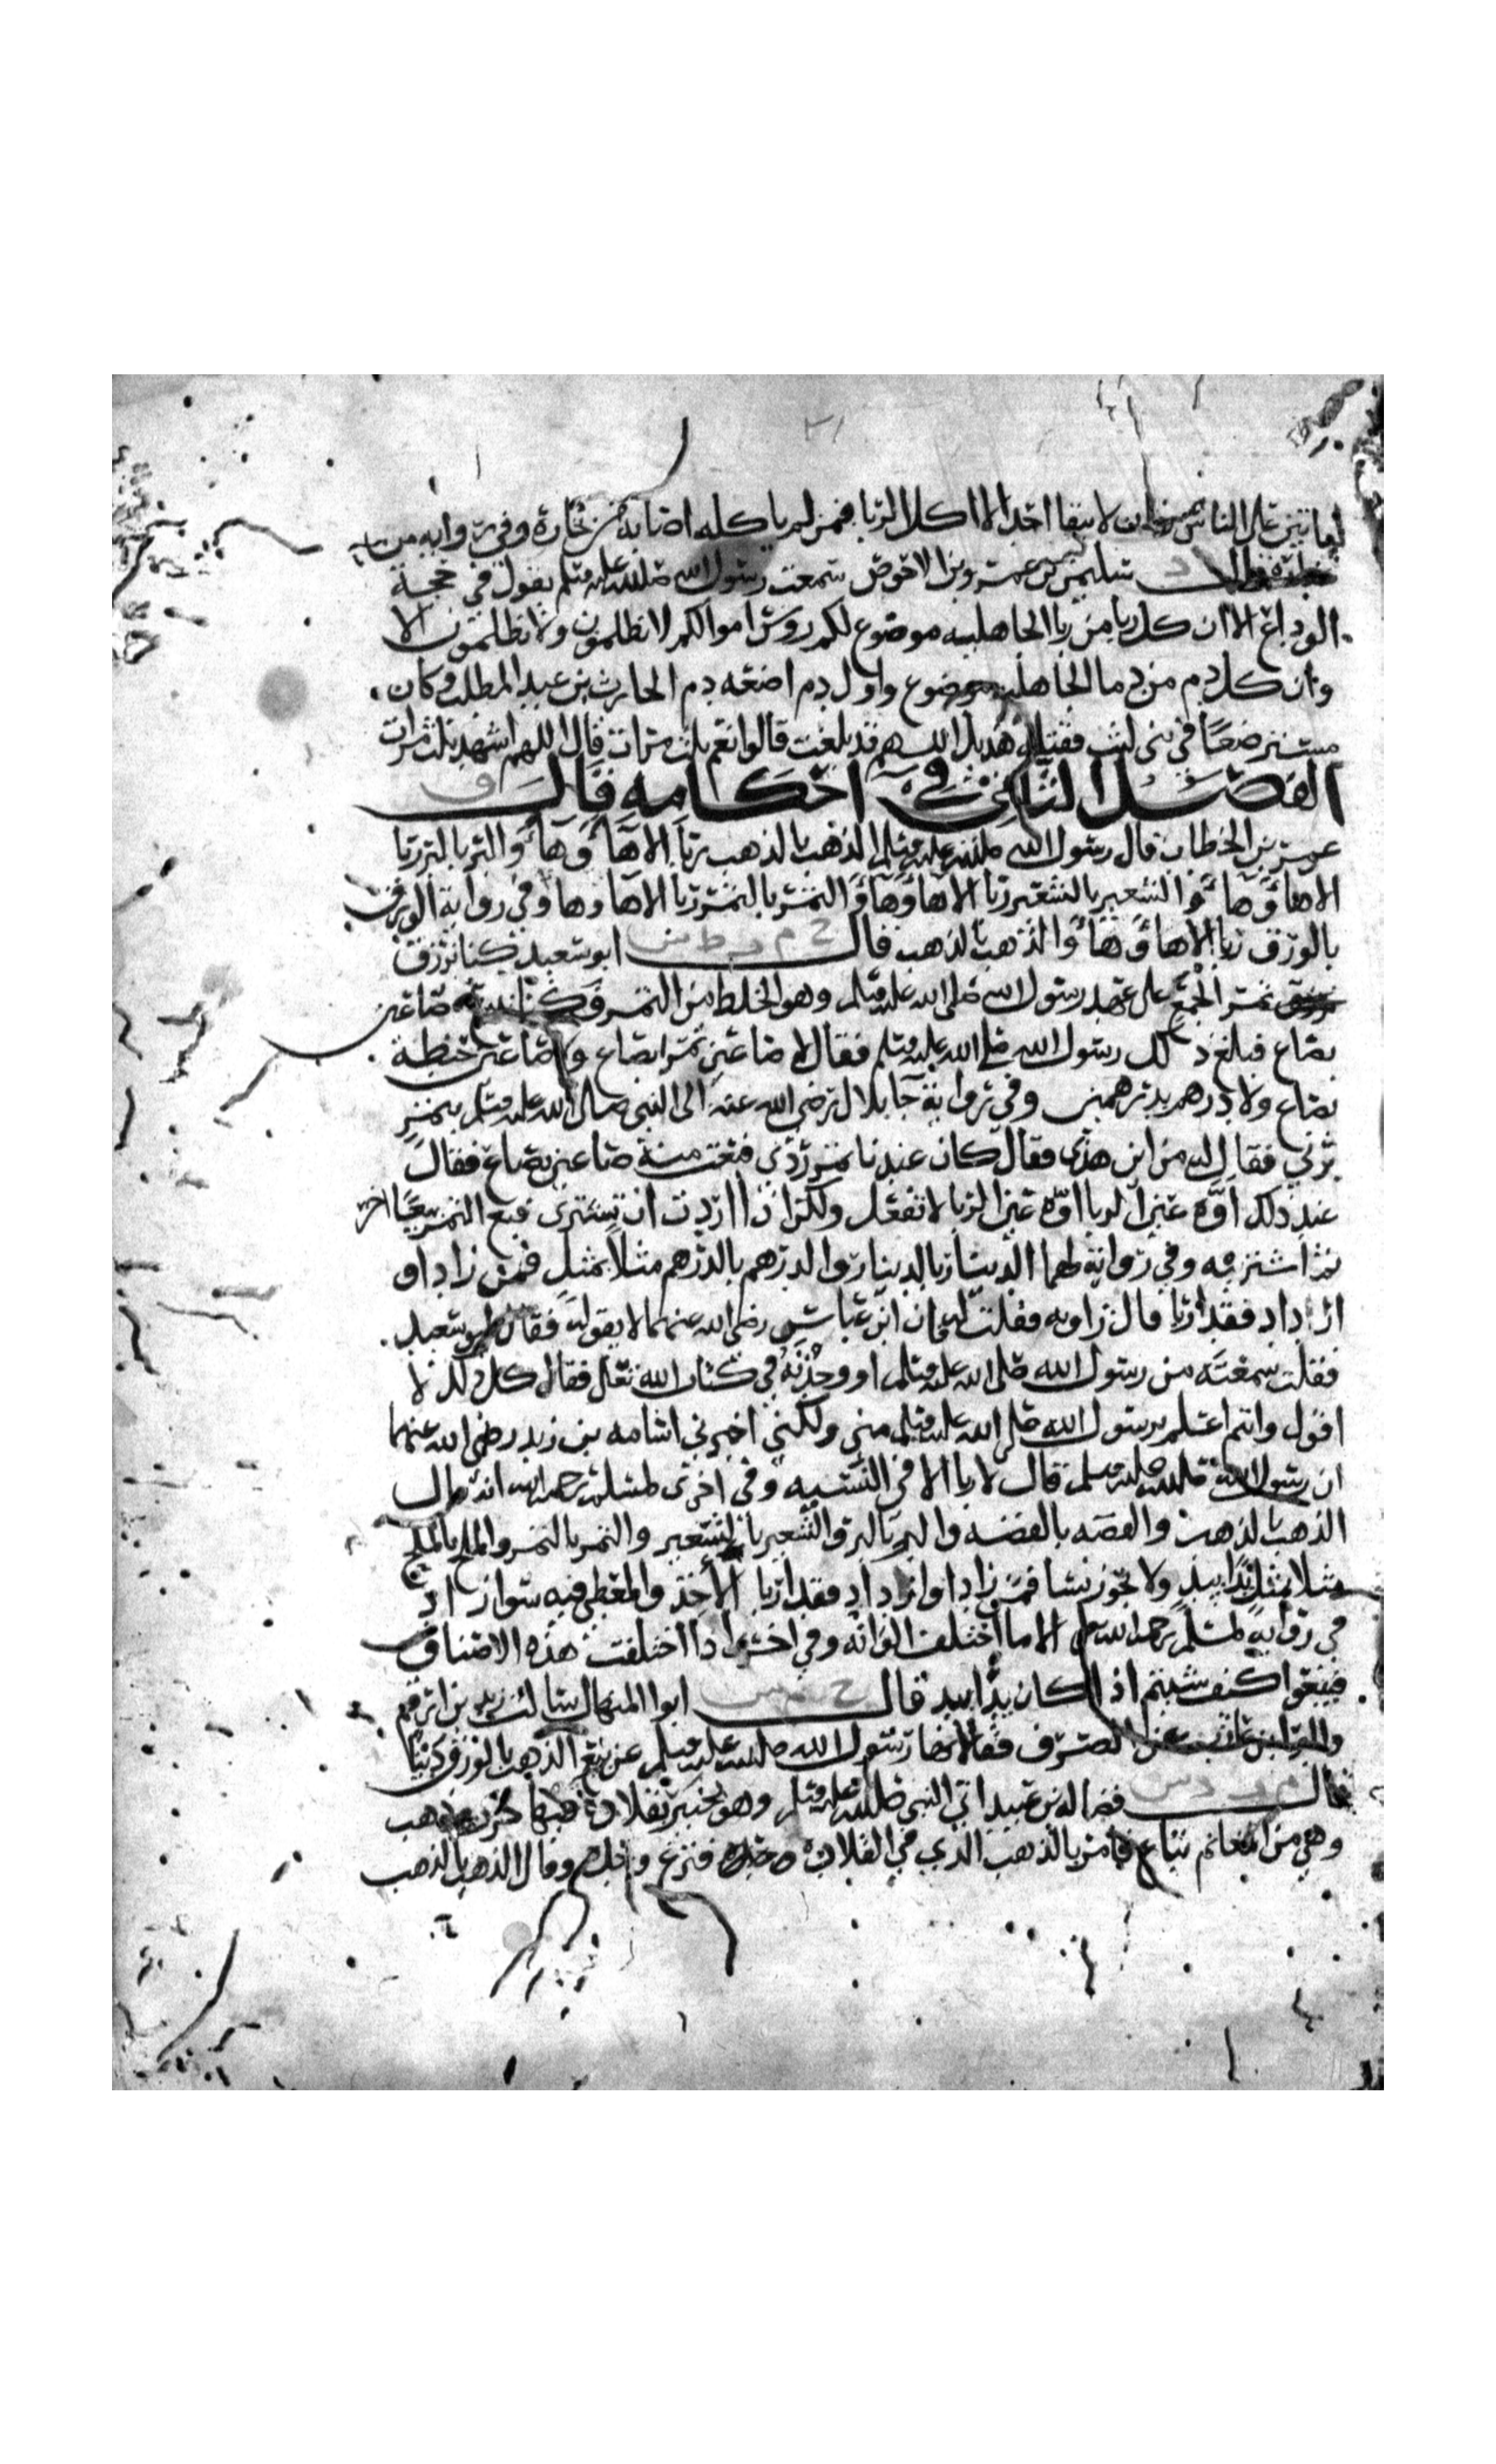 ليأتين على الناس زمان لا يبقا احد الا اكل الربا فمن لم ياكله اصابه من بخاره وفي رواية من
د سليمن بن عمرو بن الاحوص سمعت رسول الله صلى الله عليه وسلم يقول في حجة
الوداع الا ان كل ربا من ربا الجاهليه موضوع لكم روس اموالكم لا تظلمون ولا تظلمون الا
وان كل دم من دما الجاهليه موضوع واول دم اضعه دم الحارث بن عبد المطلب وكان
مسترضعا في بنى ليث فقتله هذيل اللهم قد بلغت قالوا نعم ثلث مرات قال اللهم اشهد ثلث مرات
الفصل الثاني في احكامه قال ق
عمر بن الخطاب قال رسول الله صلى الله عليه وسلم الذهب بالذهب ربا الا هاء وهاء والبر بالبر ربا
الا هاء وهاء والشعير بالشعير ربا الا هاء وهاء والتمر بالتمر ربا الا ها وها وفي رواية الورق
بالورق ربا الا هاء وهاء والذهب بالذهب قال خ م ط س ابو سعيد كنا نرزق
تمر الجمع على عهد رسول الله صلى الله عليه وسلم وهو الخلط من التمر وكنا نبيع صاعين
بصاع فبلغ ذلك رسول الله صلى الله عليه وسلم فقال لا صاعين تمرا بصاع ولا صاعين حنطة
بصاع ولا درهم بدرهمين وفي رواية جا بلال رضي الله عنه الى النبي صلى الله عليه وسلم بتمر
برني فقال له من اين هذى فقال كان عندنا تمر ردى فبعت منه صاعين بصاع فقال
عند ذلك اوه عين الربا اوه عين الربا لا تفعل ولكن اذا اردت ان تشترى فبع التمر بيعا اخر
ثم اشتر به وفي رواية لهما الدينار بالدينار والدرهم بالدرهم مثلا بمثل فمن زاد او
ازداد فقد اربا قال راويه فقلت له فان ابن عباس رضى الله عنهما لا يقوله فقال ابو سعيد
فقلت سمعته من رسول الله صلى الله عليه وسلم او وجدته في كتاب الله تعالى فقال كل ذلك لا
اقول وانتم اعلم برسول الله صلى الله عليه وسلم منى ولكني اخبرني اسامه بن زيد رضى الله عنهما
ان رسول الله صلى الله عليه وسلم قال لا ربا الا في النسيه وفي اخرى لمسلم رحمه الله انه قال
الذهب بالذهب والفضه بالفضه والبر بالبر والشعير بالشعير والتمر بالتمر والملح بالملح
مثلا بمثل يدا بيد ولا يجوز نسا فمن زاد او ازداد فقد اربا الآخذ والمعطي فيه سوا زاد
في رواية لمسلم رحمه الله الا ما اختلف الوانه وفي اخرى اذا اختلفت هذه الاصناف
فبيعوا كيف شيتم اذا كان يدا بيد قال خ م س ابو المنهال سالت زيد بن ارقم
والبرا بن عازب عن الصرف فقالا نها رسول الله صلى الله عليه وسلم عن بيع الذهب بالورق دينا
قال م د س فضاله بن عبيد اتي النبي صلى الله عليه وسلم وهو بخيبر بقلادة فيها خرز وذهب
وهي من المغانم تباع فامر بالذهب الذي في القلادة فنزع وحده وقال الذهب بالذهب